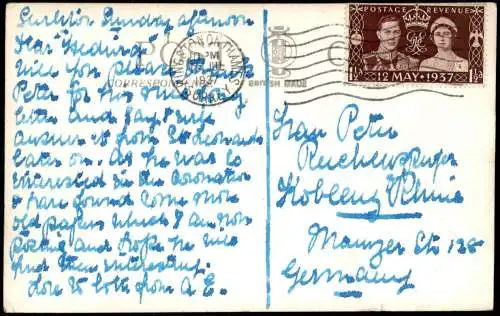 Sunday afternoon
Dear Hedwig
Will you please
Peter for his
letter and say I will
answer it from St Leonards
later on. as he was so
interested in the Coronation
I have found some more
old papers which I am now
posting and hope he will
find them interesting.
Love to both from A E.
KINGSTON ON THAMES
1937
SURREY
BRITISH MADE
POSTAGE REVENUE
1½d 12 MAY 1937 1½d
Herrn Peter
Koblenz Rhine
Mainzer Str 128
Germany